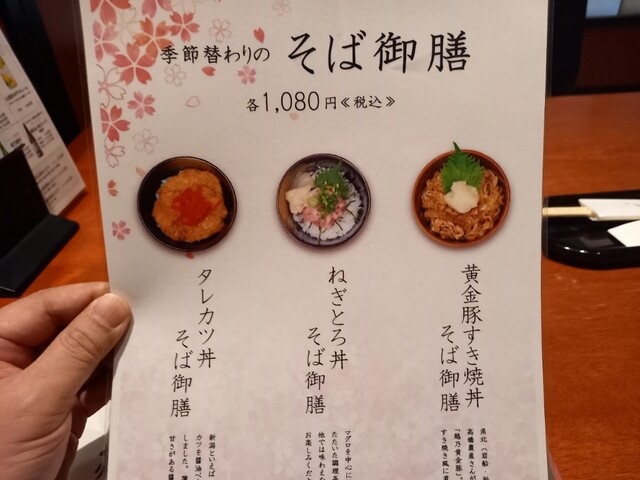 季節替わりの そば御膳
各1,080円≪税込≫
黄金豚すき焼丼
そば御膳
県北（岩船・
高橋農産さんが
「越乃黄金豚」。
すき焼き風に
ねぎとろ丼
そば御膳
マグロを中心に
たたいた調理
他では味わえな
お楽しみくだ
タレカツ丼
そば御膳
新潟といえば
カツを醤油ベ
しました。
甘さがある